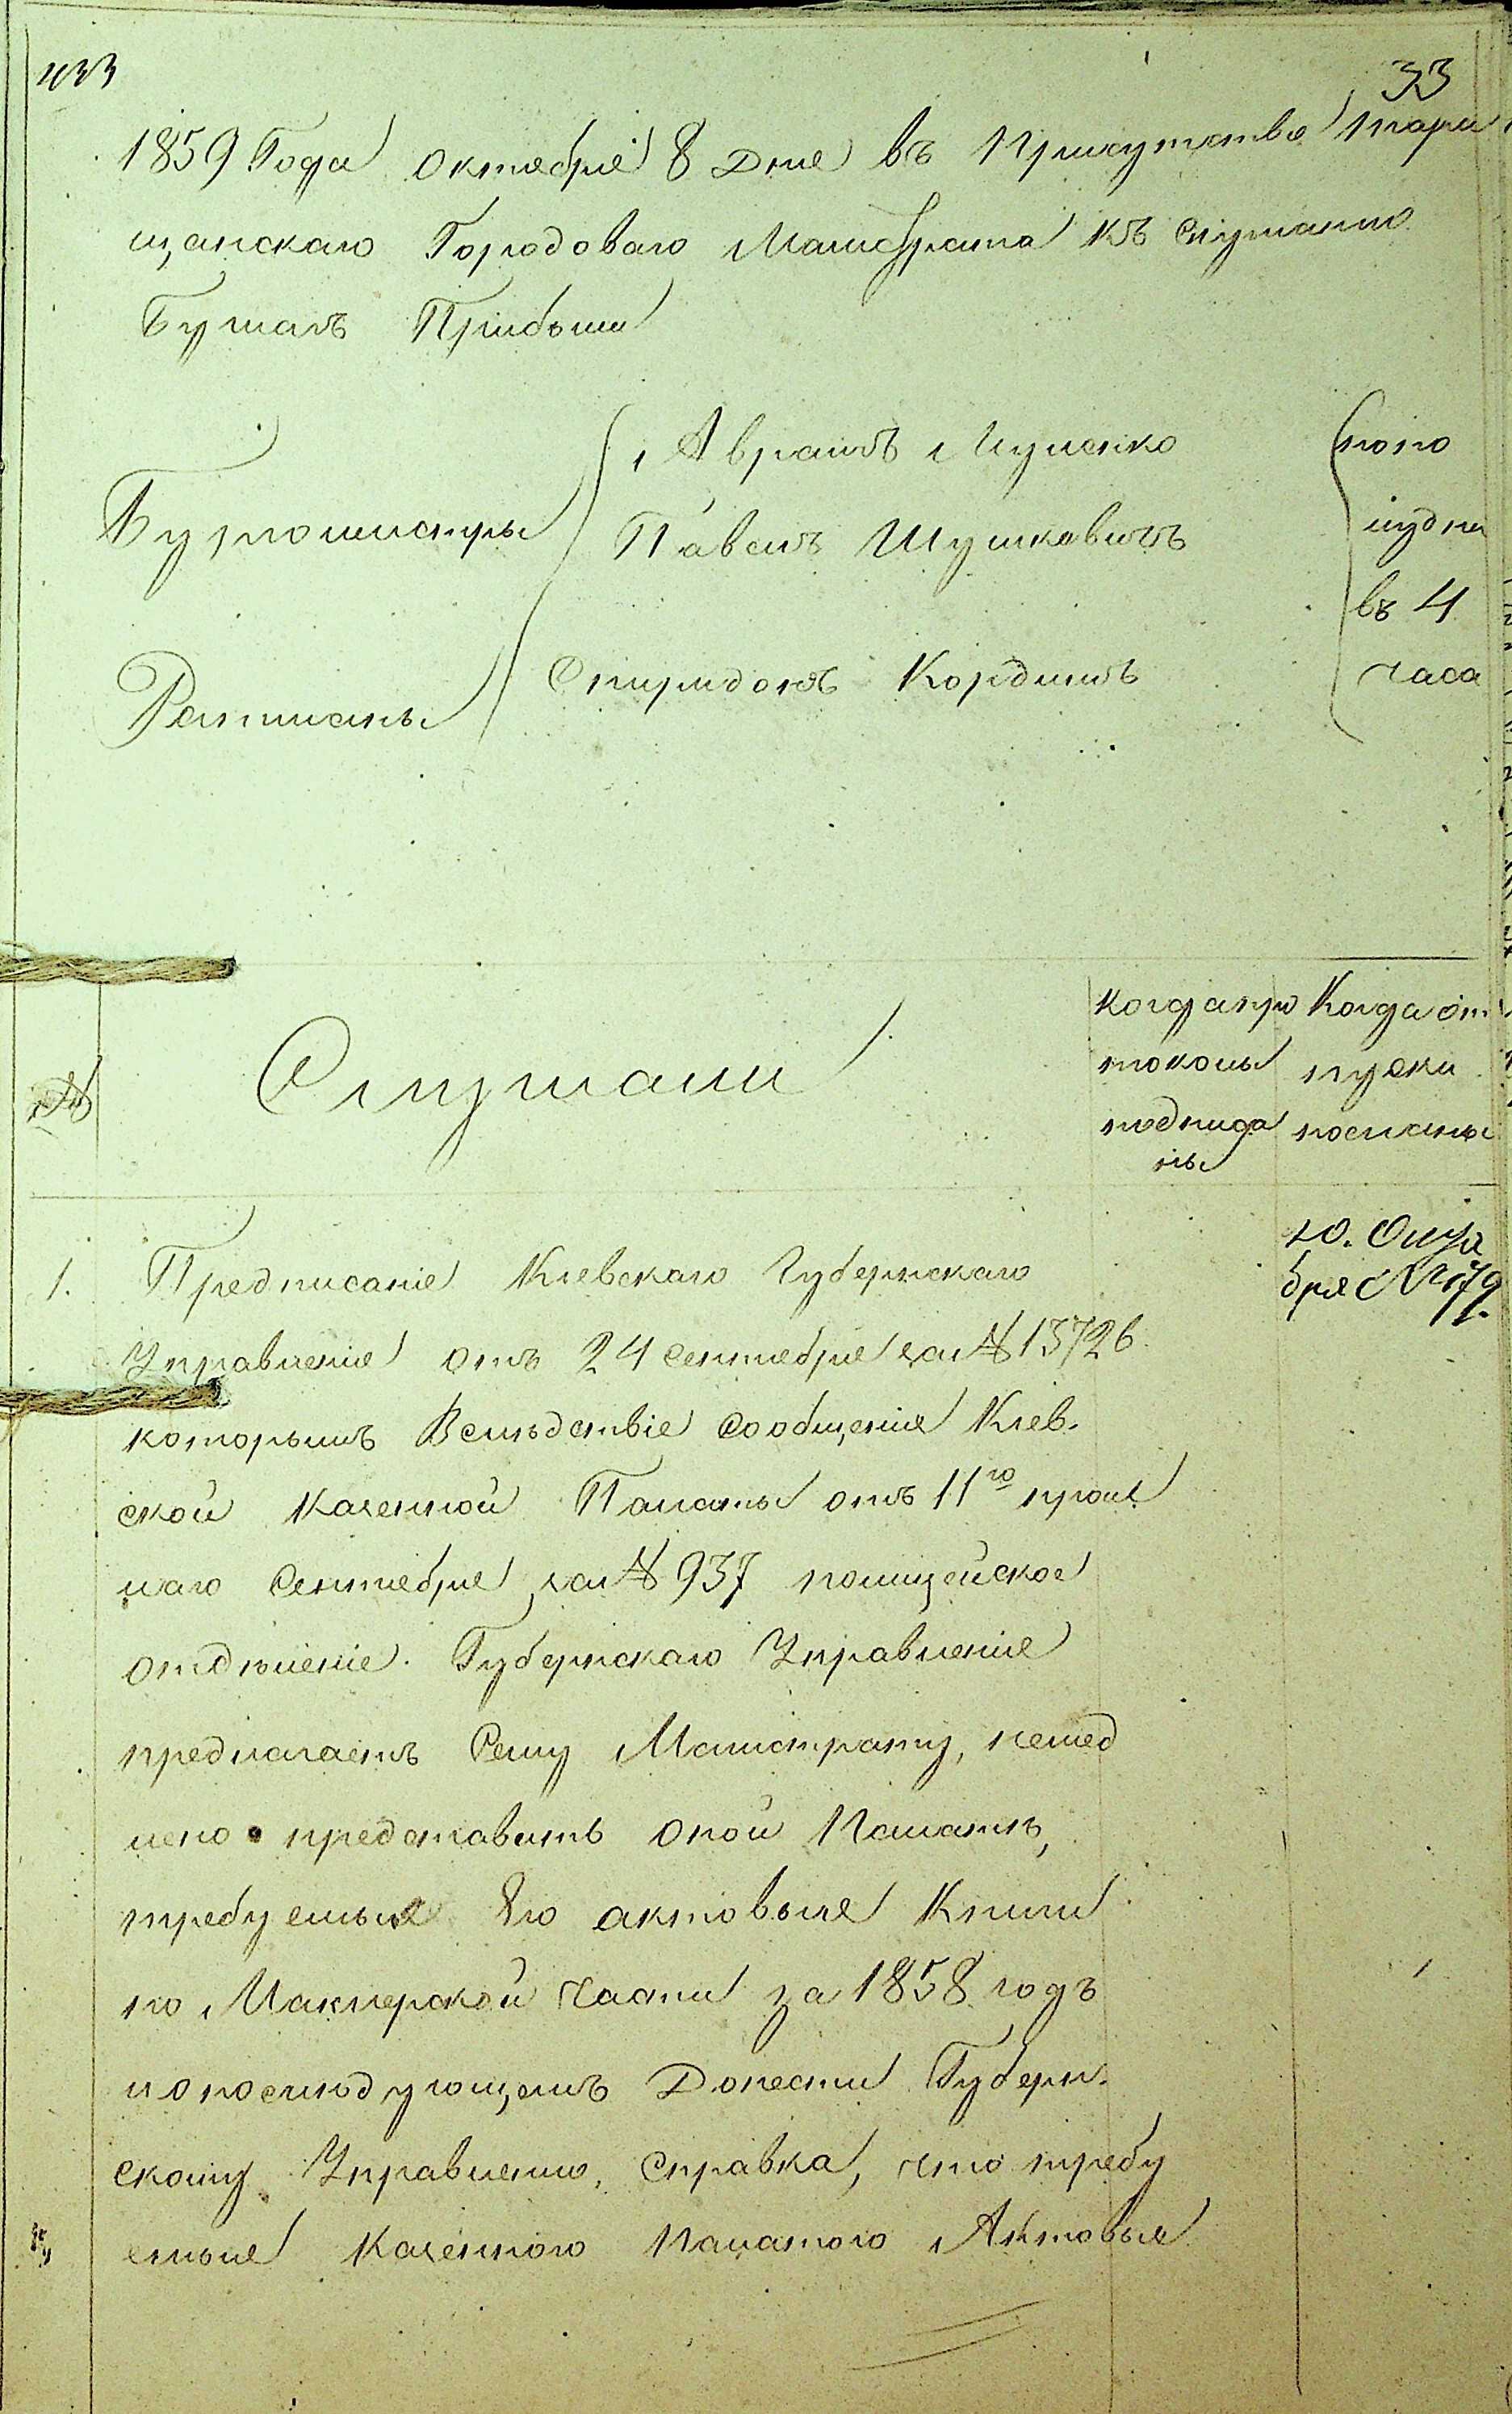 433
33
1859 Года октября 8 дня въ Присутствіе Тара
щанскаго Городоваго Магистрата къ слушанію
Бумагъ Прибыли
Бургомистры
Аврамъ
Павелъ Шушковичъ
Ратманы
Спиридонъ Кордишъ
по по
лудни
въ 4
часа
№
Слушали
Когда про
токолы
подписа
ны
Когда от
пуски
посланы
1. Предписаніе Кіевскаго Губернскаго
Управленія отъ 24 Сентября за № 13726
которымъ Вслѣдствіе сообщенія Кіев.
ской Казенной Палаты отъ 11го прош
лаго Сентября за № 937 полицейское
отдѣленіе. Губернскаго Управленія
предлагаетъ Сему Магистрату, немед
лено представить оной Палатѣ,
требуемыя Ею актовые Книги
по Маклерской части за 1858 годъ
и о послѣдующемъ Донести Губерн.
скому Управленію, Справка, что требу
емые Казенною Палатою Актовые
10. Октя
бря № 179.